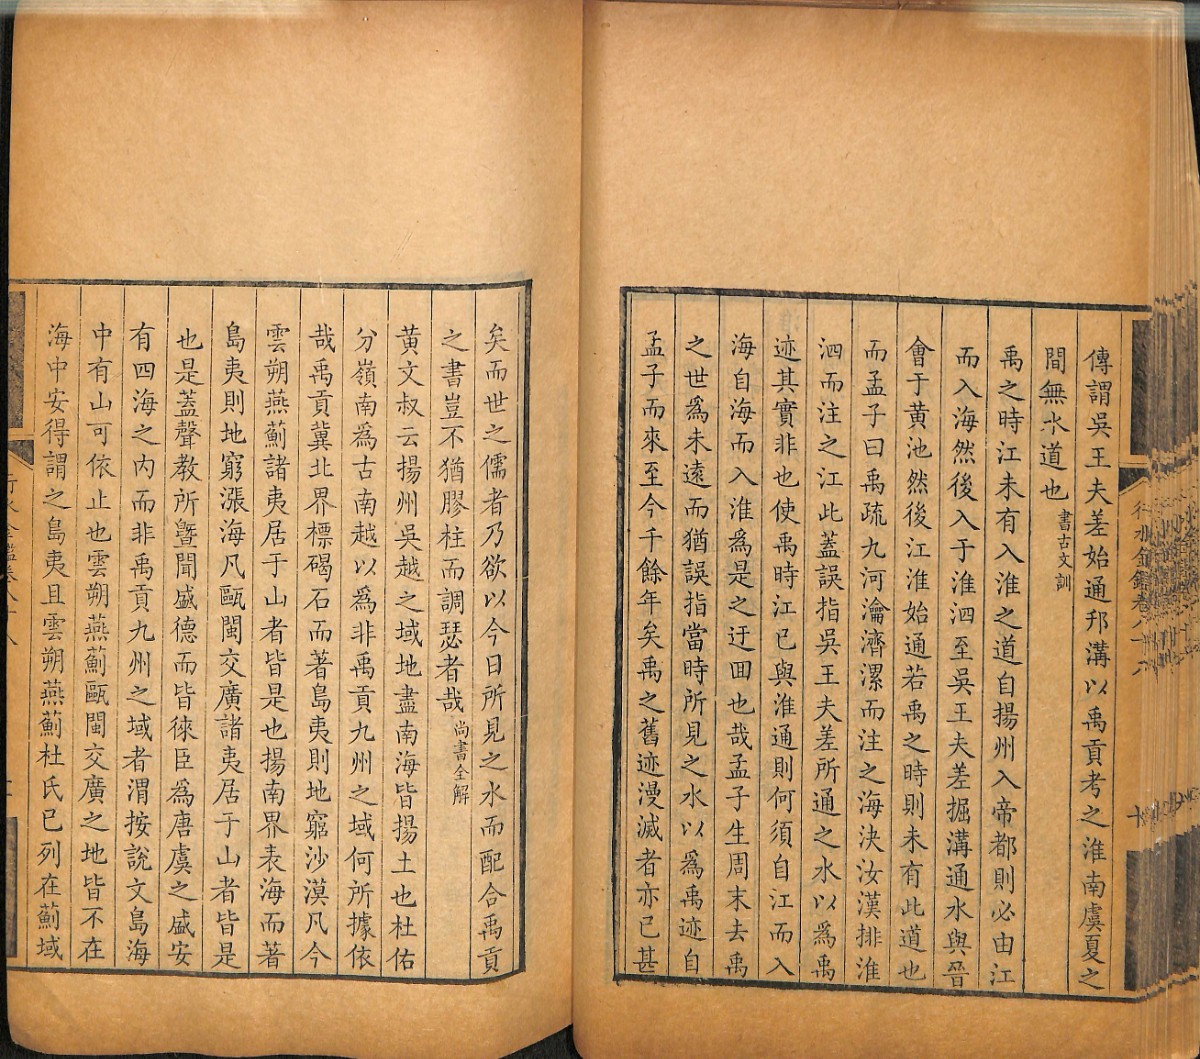 傳謂吳王夫差始通邗溝以禹貢考之淮南虞夏之
間無水道也書古文訓
禹之時江未有入淮之道自揚州入帝都則必由江
而入海然後入于淮泗至吳王夫差掘溝通水與晉
會于黄池然後江淮始通若禹之時則未有此道也
而孟子曰禹疏九河瀹濟漯而注之海決汝漢排淮
泗而注之江此蓋誤指吳王夫差所通之水以為禹
迹其實非也使禹時江已與淮通則何須自江而入
海自海而入淮為是之迂囬也哉孟子生周末去禹
之世為未遠而猶誤指當時所見之水以為禹迹自
孟子而來至今千餘年矣禹之舊迹漫滅者亦已甚
矣而世之儒者乃欲以今日所見之水而配合禹貢
之書豈不猶膠柱而調瑟者哉尚書全解
黄文叔云揚州吳越之域地盡南海皆揚土也杜佑
分嶺南為古南越以為非禹貢九州之域何所據依
哉禹貢冀北界標碣石而著島夷則地窮沙漠凡今
雲朔燕薊諸夷居于山者皆是也揚南界表海而著
島夷則地窮漲海凡甌閩交廣諸夷居于山者皆是
也是蓋聲教所曁聞盛德而皆徠臣為唐虞之盛安
有四海之内而非禹貢九州之域者渭按說文島海
中有山可依止也雲朔燕薊甌閩交廣之地皆不在
海中安得謂之島夷且雲朔燕薊杜氏已列在薊域
行水金鑑卷八十八